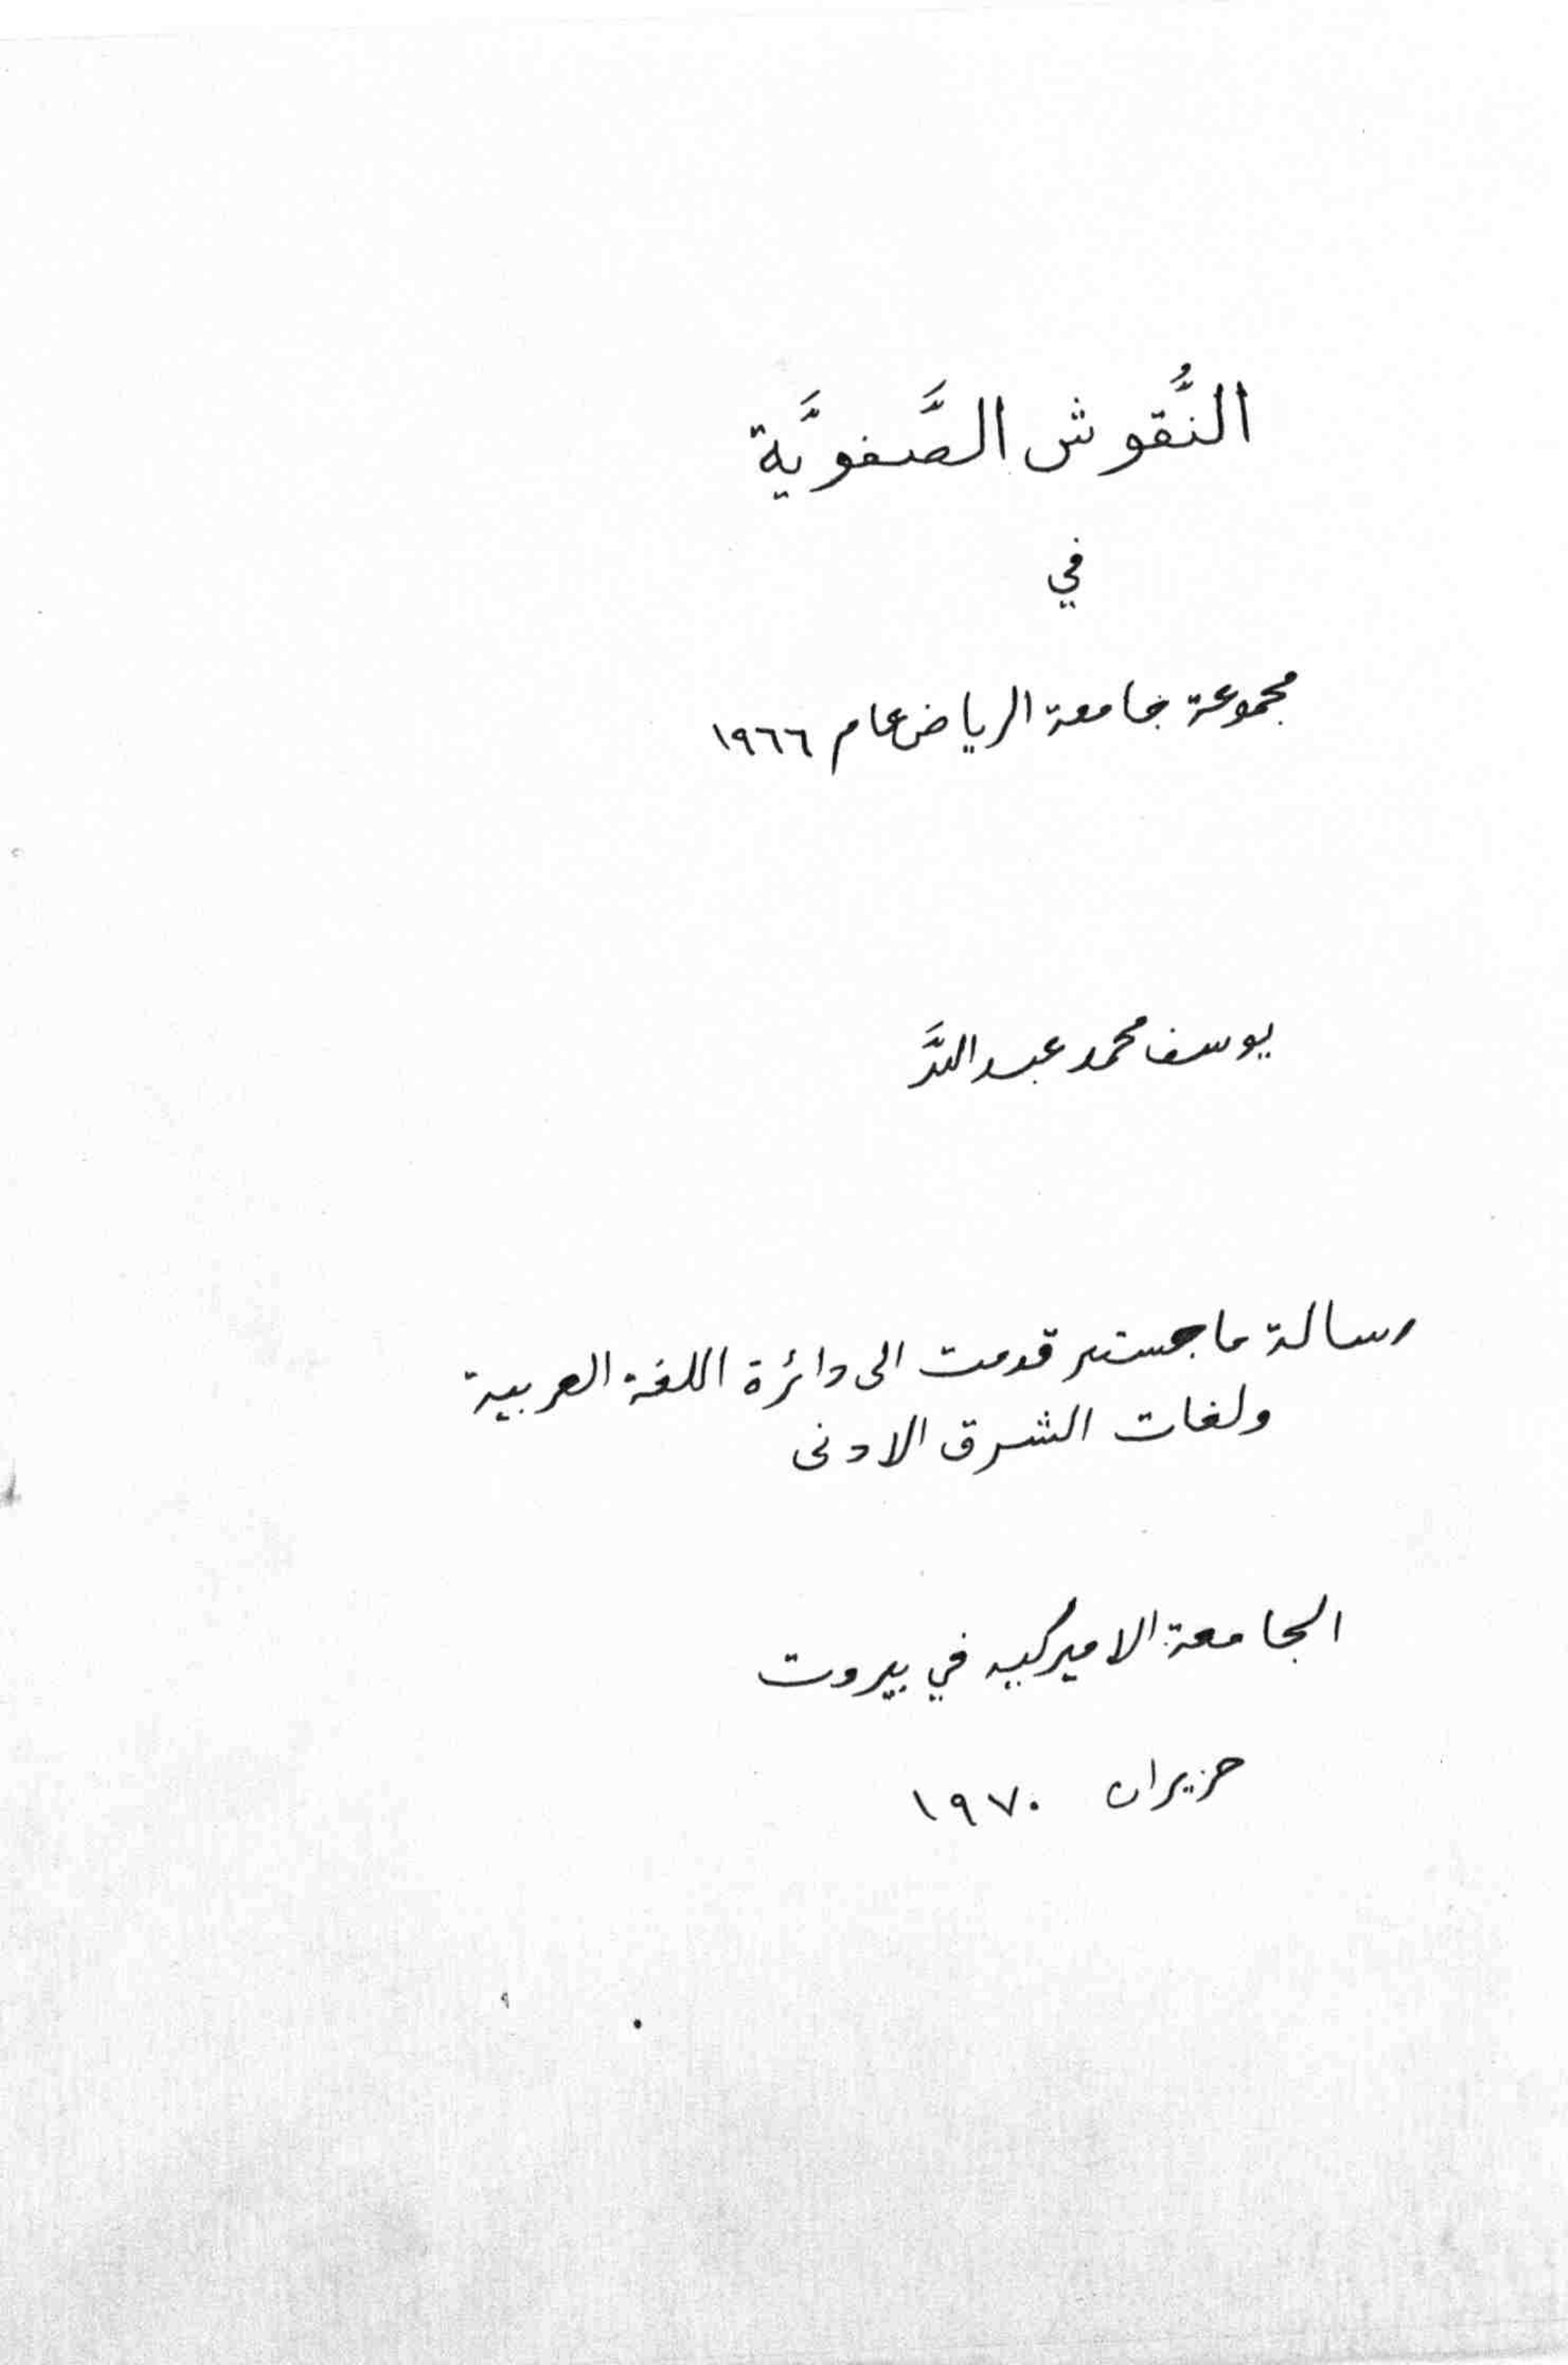 النُّقوش الصَّفويَّة
في
مجموعة جامعة الرياض عام ١٩٦٦
يوسف محمد عبد اللّه
رسالة ماجستير قدمت الى دائرة اللغة العربية
ولغات الشرق الادنى
الجامعة الاميركيه في بيروت
حزيران ١٩٧٠